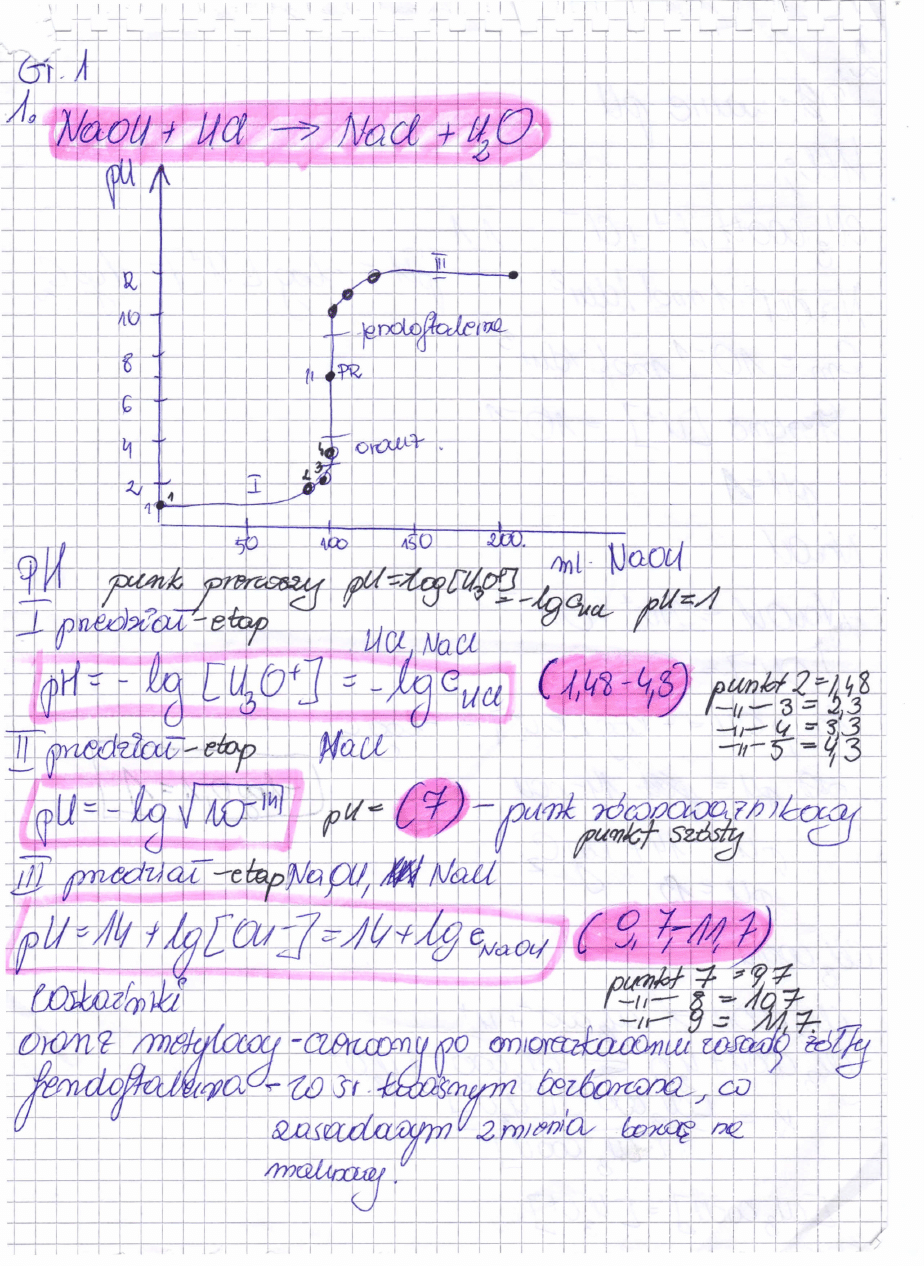 Gr. 1
1. NaOH + HCl → NaCl + H₂O
pH
12
10
8
6
4
2
1
1
I
2
3
4
II
PR
III
fenoloftaleina
oranż.
50
100
150
200.
ml. NaOH
PH punk pierwszy pH=-log[H₃O⁺] = -lg cHCl pH=1
I przedział-etap
HCl, NaCl
pH = -lg [H₃O⁺] = -lg cHCl (1,48-4,3)
punkt 2 = 1,48
-॥- 3 = 2,3
-॥- 4 = 3,3
-॥- 5 = 4,3
II przedział-etap NaCl
pH = -lg √10⁻¹⁴ pH = (7) - punk równoważnikowy
punkt szósty
III przedział-etap NaOH, NaCl
pH = 14 + lg [OH⁻] = 14 + lg cNaOH (9,7-11,7)
punkt 7 = 9,7
-॥- 8 = 10,7
-॥- 9 = 11,7.
wskaźniki
oranż metylowy - czerwony po zasadą żółty
fenoloftaleina - w śr. kwaśnym bezbarwna, w
zasadowym zmienia barwę na
malinowy.